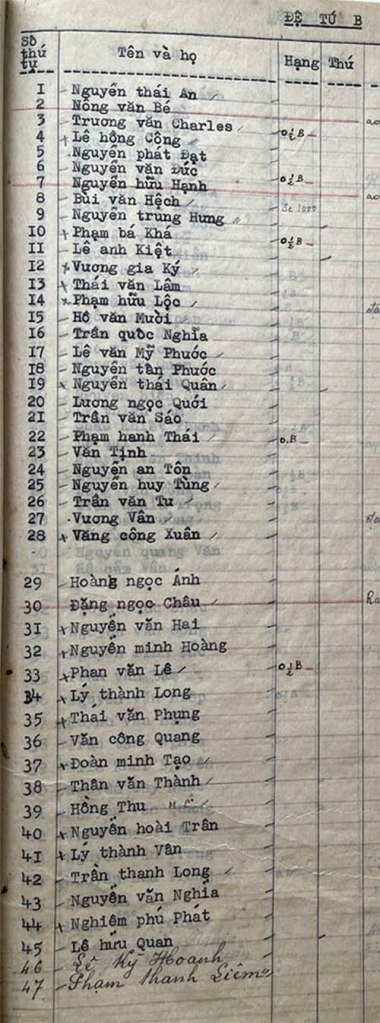 ĐỆ TỨ B
Số thứ tự Tên và họ Hạng Thú
1 Nguyễn thái An
2 Nông văn Bé
3 Trương văn Charles
4 Lê hồng Công o½B
5 Nguyễn phát Đạt
6 Nguyễn văn Đức
7 Nguyễn hữu Hạnh o½B
8 Bùi văn Hệch
9 Nguyễn trung Hưng
10 Phạm bá Khá o½B
11 Lê anh Kiệt
12 Vương gia Ký
13 Thái văn Lâm
14 Phạm hữu Lộc
15 Hồ văn Mười
16 Trần quốc Nghĩa
17 Lê văn Mỹ Phước
18 Nguyễn tấn Phước
19 Nguyễn thái Quân
20 Lương ngọc Quới
21 Trần văn Sáo
22 Phạm hanh Thái o.B
23 Văn Tịnh
24 Nguyễn an Tôn
25 Nguyễn huy Tùng
26 Trần văn Tư
27 Vương Vân
28 Văng công Xuân
29 Hoàng ngọc Ánh
30 Đặng ngọc Châu
31 Nguyễn văn Hai
32 Nguyễn minh Hoàng
33 Phan văn Lê o½B
34 Lý thành Long
35 Thái văn Phụng
36 Văn công Quang
37 Đoàn minh Tạo
38 Thân văn Thành
39 Hồng Thu
40 Nguyễn hoài Trân
41 Lý thành Vân
42 Trần thanh Long
43 Nguyễn văn Nghĩa
44 Nghiêm phú Phát
45 Lê hữu Quan
46 Lê Kỳ Hoanh
47 Phạm Thanh Liêm